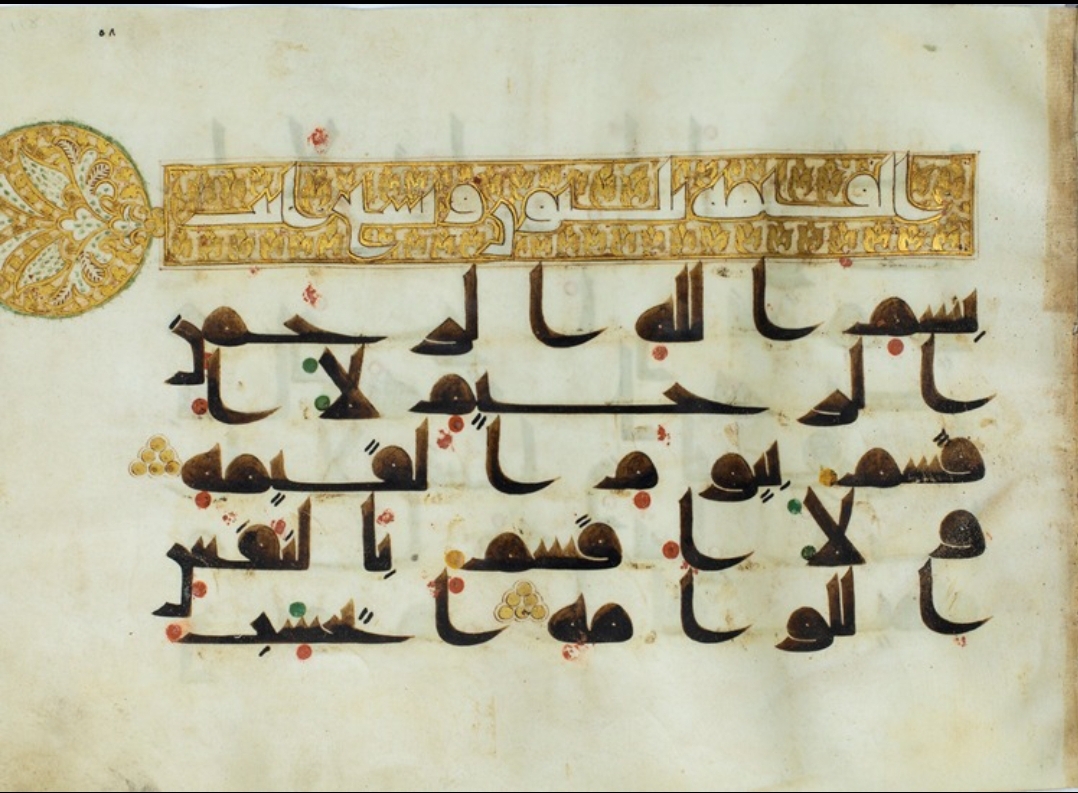 ٥٨
القيمه ثلثون وتسع ايات
بسم الله الرحمن
الرحيم لا ا
قسم بيوم القيمه
ولا اقسم بالنفس
اللوامه ايحسب